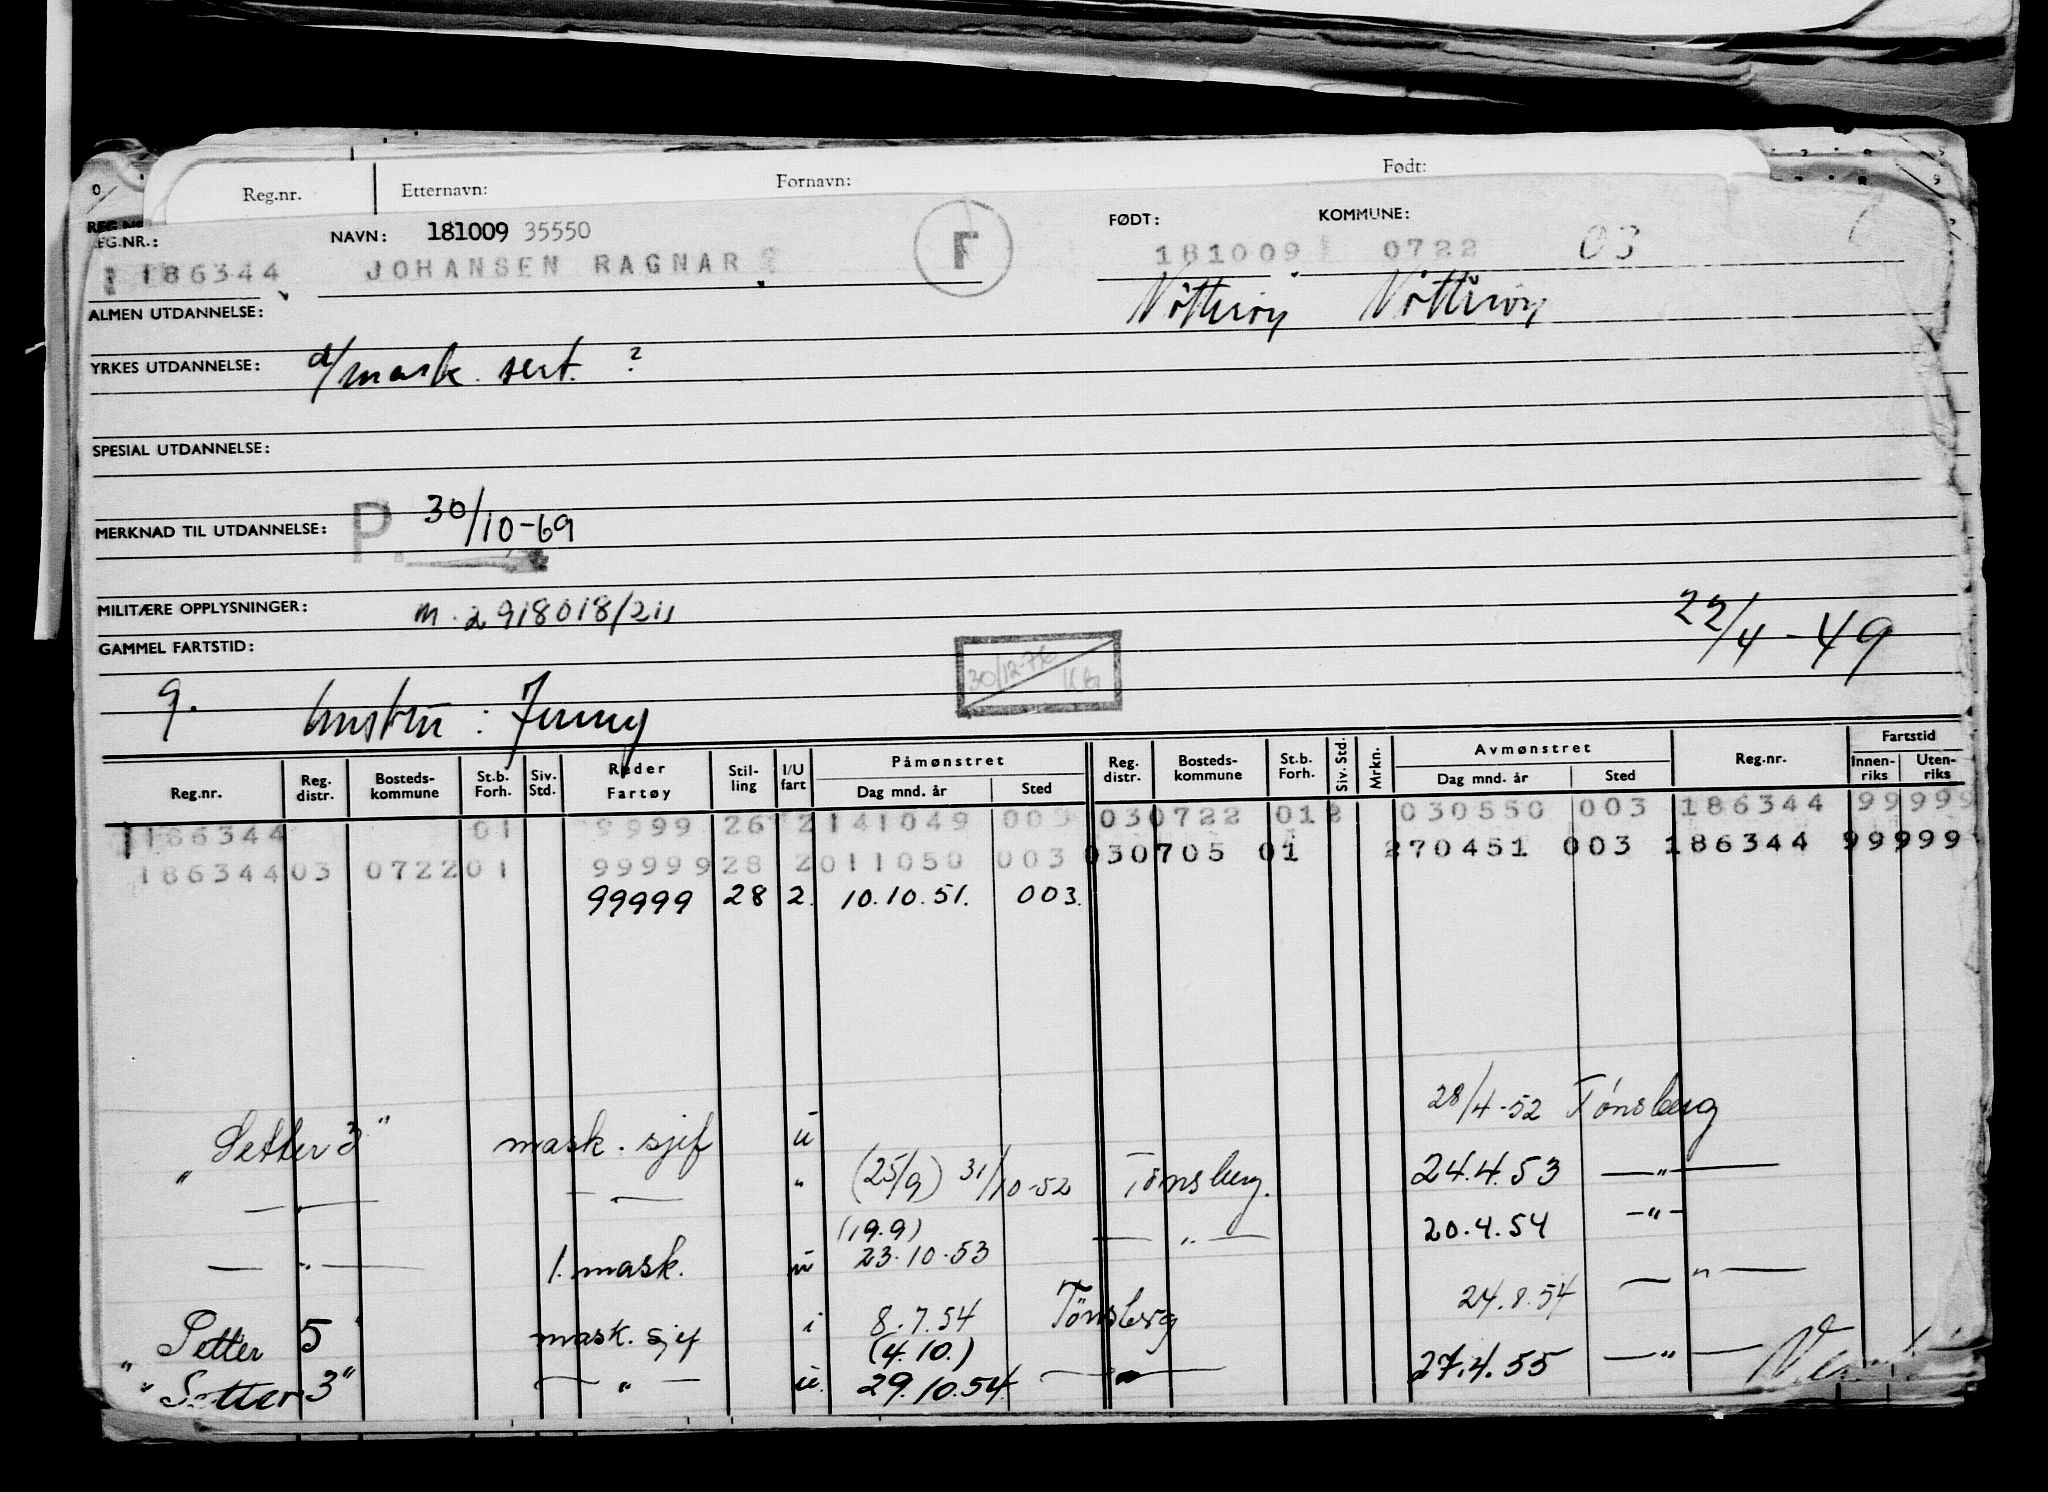 Reg.nr. Etternavn: Fornavn: Født:
REG.NR.: NAVN: 181009 35550 F FØDT: KOMMUNE:
186344 JOHANSEN RAGNAR 181009 0722 03
ALMEN UTDANNELSE: Nötteröy Nötteröy
YRKES UTDANNELSE: d/mask. sert. ?
SPESIAL UTDANNELSE:
MERKNAD TIL UTDANNELSE: P. 30/10-69
MILITÆRE OPPLYSNINGER: m. 2918018/211
GAMMEL FARTSTID: 22/4-49
30/12-76 KG
g. hustru: Jenny
Påmønstret Avmønstret Fartstid
Reg.nr. Reg. distr. Bosteds- kommune St.b. Forh. Siv. Std. Reder Fartøy Stil- ling I/U fart Dag mnd. år Sted Reg. distr. Bosteds- kommune St.b. Forh. Siv. Std. Mrkn. Dag mnd. år Sted Reg.nr. Innen- riks Uten- riks
186344 01 9999 26 2 141049 003 030722 012 030550 003 186344 99999
186344 03 0722 01 99999 28 2 011050 003 030705 01 270451 003 186344 99999
99999 28 2. 10.10.51. 003.
"Setter 3" mask. sjef u 28/4-52 Tønsberg
— " — — " (25/9) 31/10-52 Tønsberg. 24.4.53 —"—
— " — 1. mask. u (19.9) 23.10.53 — " — 20.4.54 —"—
"Setter 5" mask. sjef i 8.7.54 Tönsberg 24.8.54 — " —
"Setter 3" — " — u. (4.10.) 29.10.54. — " — 27.4.55 —"—